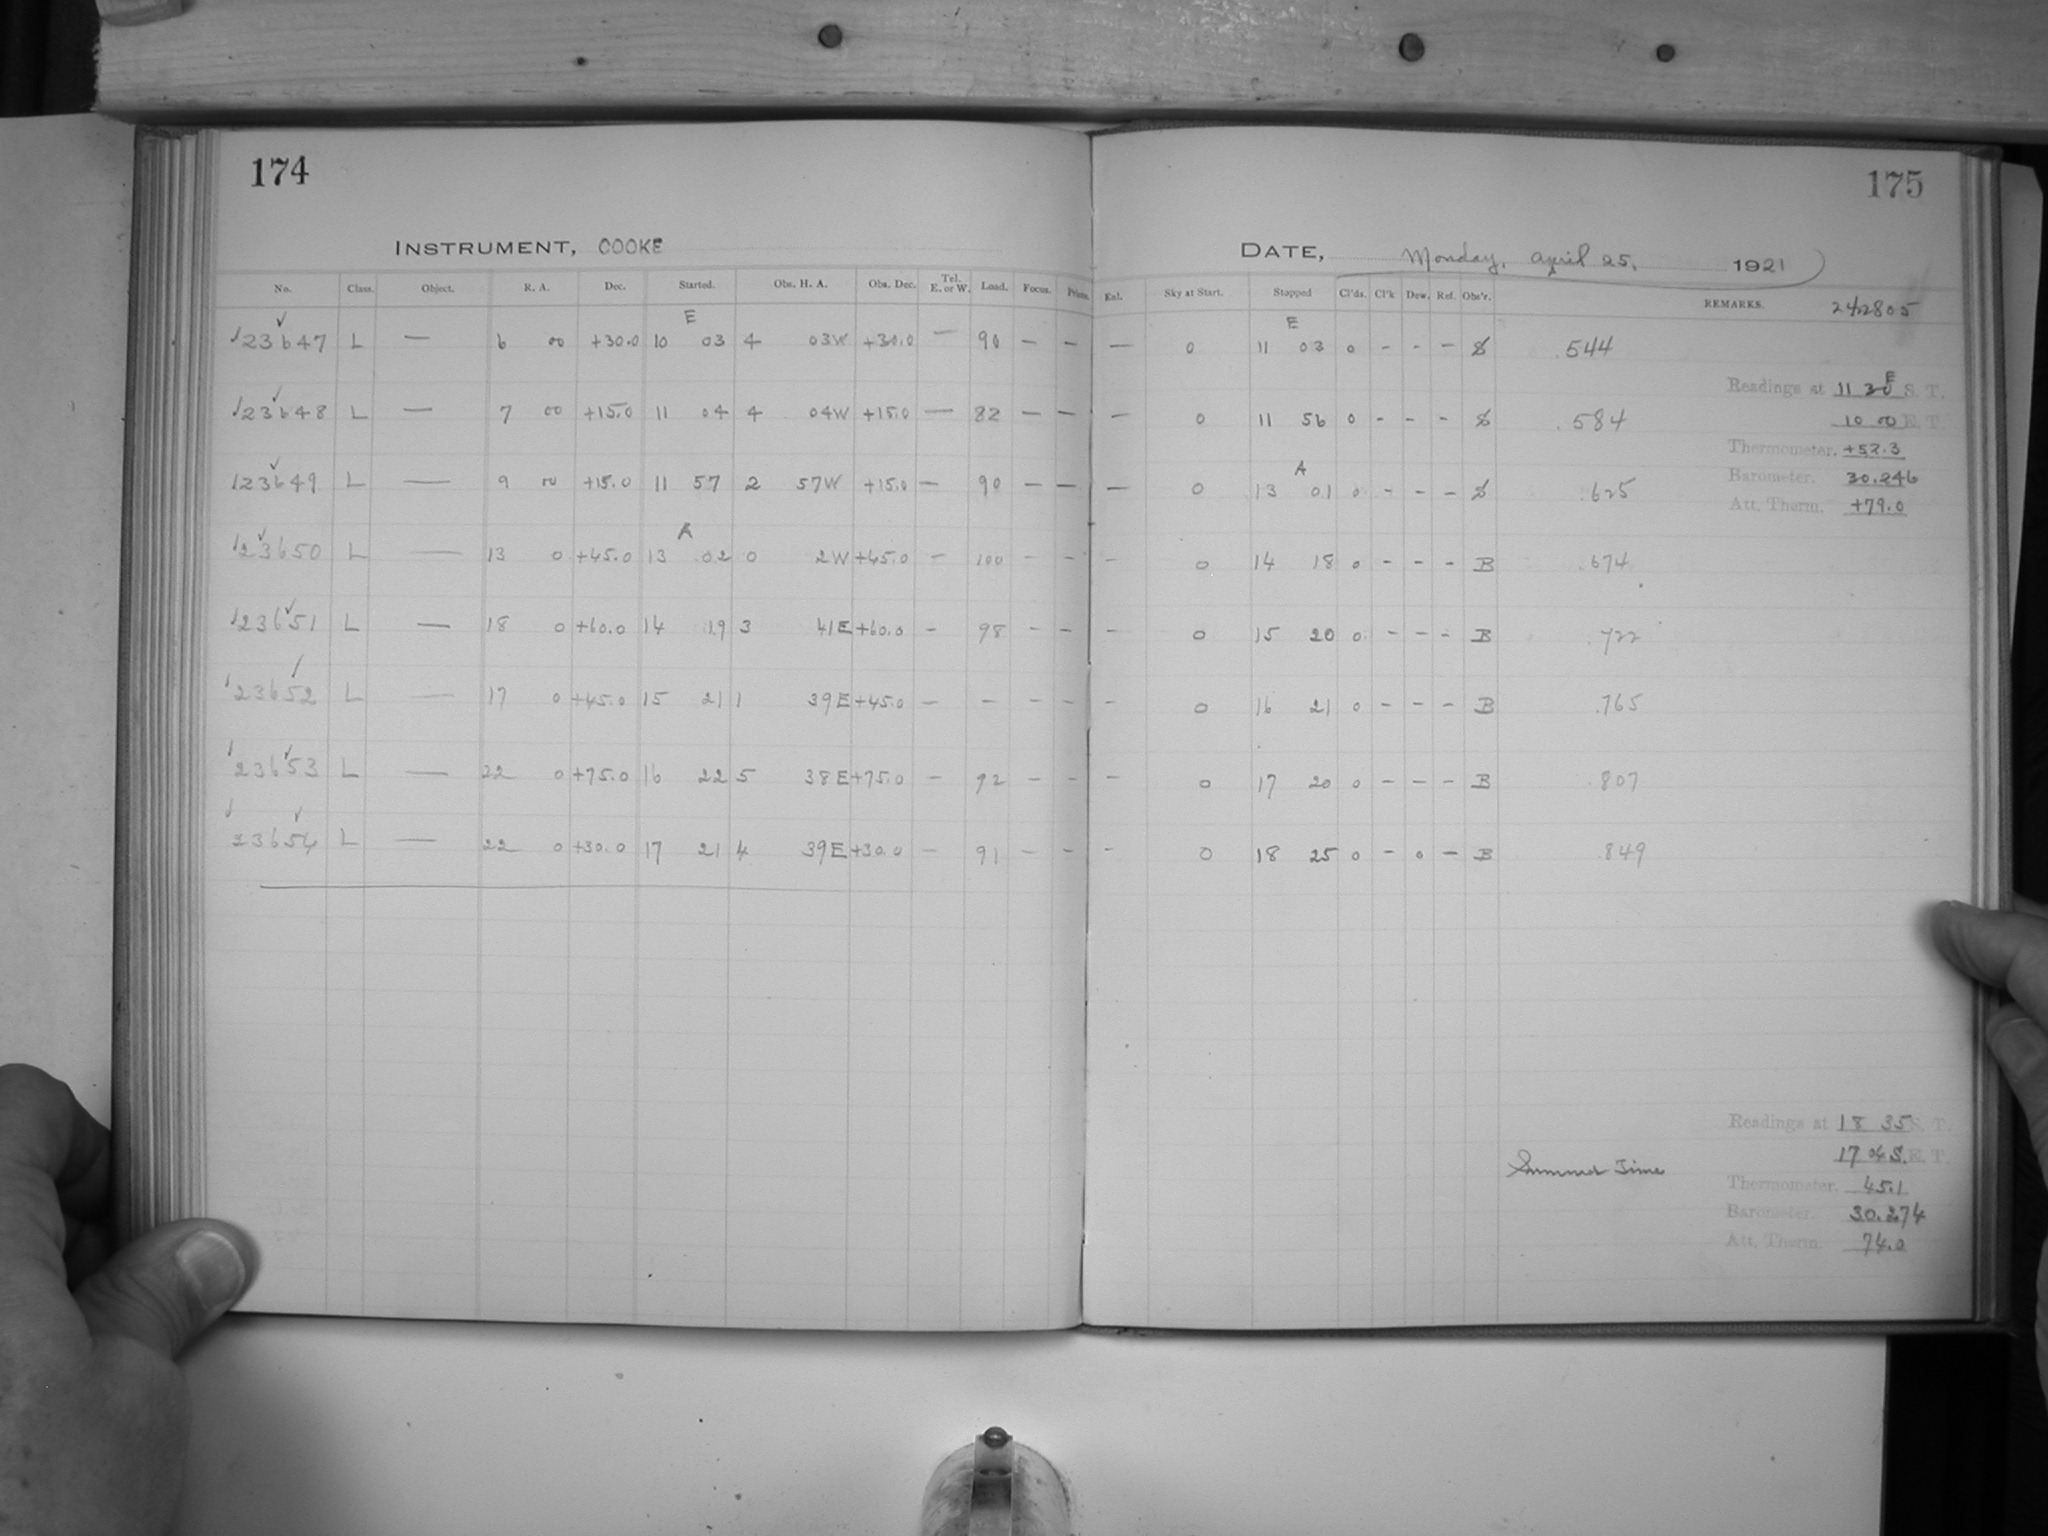 174
INSTRUMENT, COOKE
No. Class. Object. R. A. Dec. Started. Obs. H. A. Obs. Dec. Tel. E. or W. Load. Focus. Prism.
E
23647 L — 6 00 +30.0 10 03 4 03W +30.0 — 90 — —
23648 L — 7 00 +15.0 11 04 4 04W +15.0 — 82 — —
23649 L — 9 00 +15.0 11 57 2 57W +15.0 — 90 — —
A
23650 L — 13 0 +45.0 13 02 0 2W +45.0 - 100 - -
23651 L — 18 0 +60.0 14 19 3 41E +60.0 - 98 - -
23652 L — 17 0 +45.0 15 21 1 39E +45.0 - - - -
23653 L — 22 0 +75.0 16 22 5 38E +75.0 - 92 - -
23654 L — 22 0 +30.0 17 21 4 39E +30.0 - 91 - -
175
DATE, Monday, April 25, 1921
Enl. Sky at Start. Stopped Cl'ds. Cl'k Dew. Ref. Obs'r. REMARKS. 2422805
E
— 0 11 03 0 - - - S .544
— 0 11 56 0 - - - S .584
A
— 0 13 01 0 - - - S .625
- 0 14 18 0 - - - B .674
- 0 15 20 0 - - - B .722
- 0 16 21 0 - - - B .765
- 0 17 20 0 - - - B .807
- 0 18 25 0 - 0 - B .849
Readings at 11 30 E S. T.
10 00 E. T.
Thermometer. +52.3
Barometer. 30.246
Att. Therm. +79.0
Readings at 18 35 S. T.
Summer Time 17 04 S. E. T.
Thermometer. 45.1
Barometer. 30.274
Att. Therm. 74.0